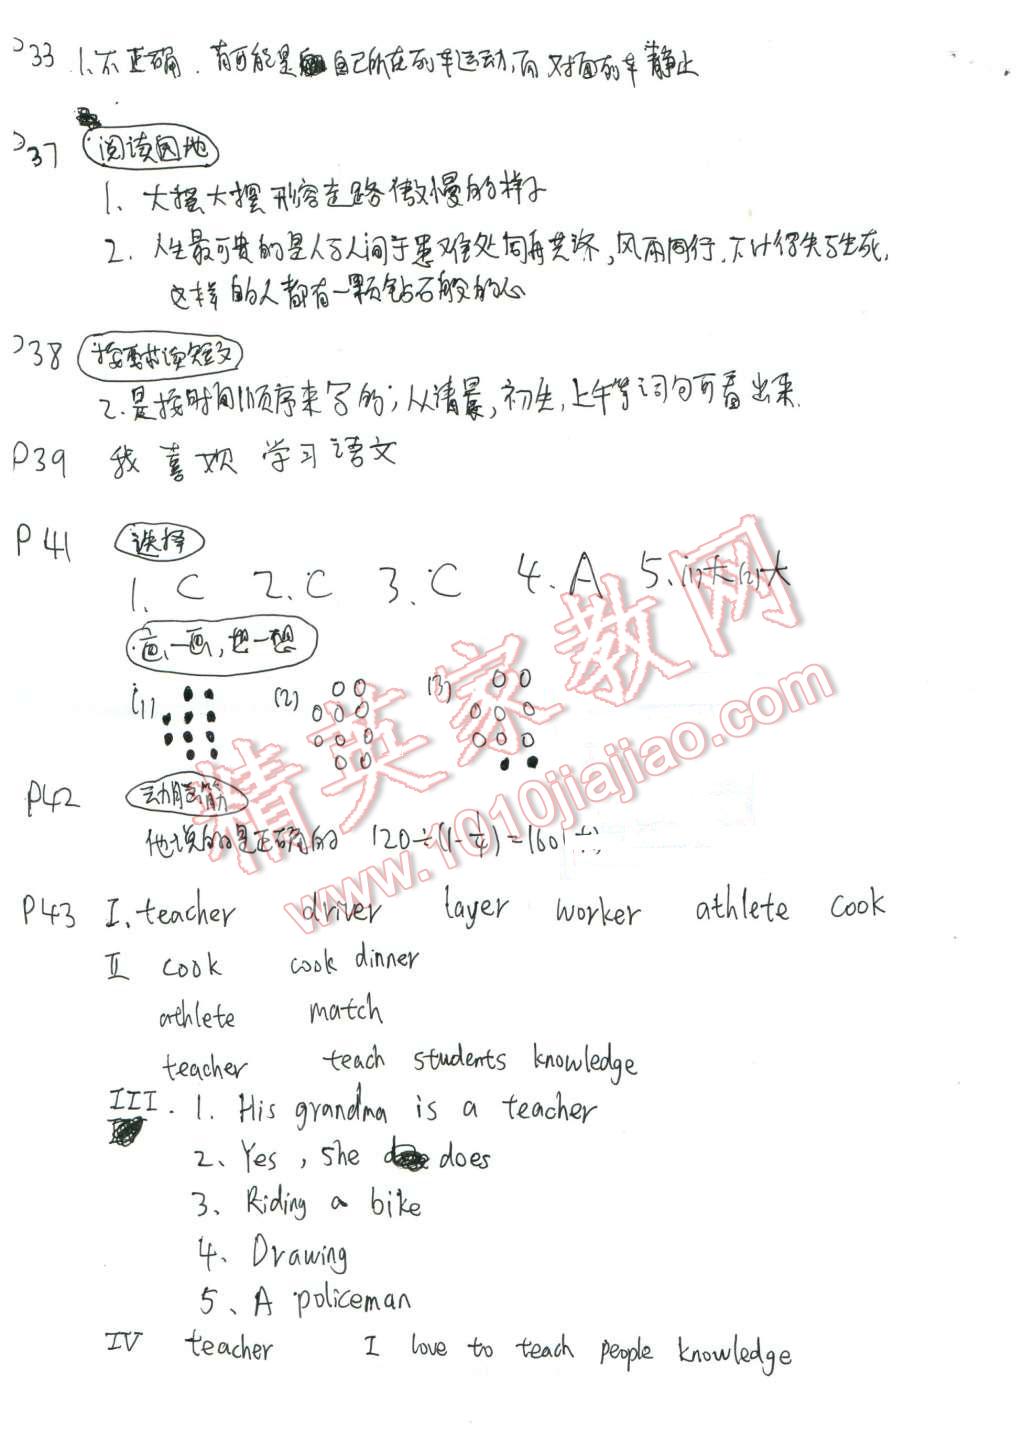 P33 1、不正确．有可能是自己所在的车运动，而对面的车静止
P37 阅读园地
1、大摇大摆 形容走路傲慢的样子
2．人生最可贵的是人与人间于患难处同舟共济，风雨同行，不计得失与生死，
这样的人都有一颗钻石般的心
P38 按要求读短文
2．是按时间顺序来写的；从清晨，初生，上午等词句可看出来．
P39 我喜欢学习语文
P41 选择
1、C 2、C 3、C 4、A 5、(1)大(2)大
画一画，想一想
(1) (2) (3)
P42 动脑筋
他说的是正确的 120÷(1-1/4)=160(
P43 I、teacher driver layer worker athlete cook
II cook cook dinner
athlete match
teacher teach students knowledge
III． 1．His grandma is a teacher
2、Yes，she does
3、Riding a bike
4、Drawing
5、A policeman
IV teacher I love to teach people knowledge
精英家教网
www.1010jiajiao.com